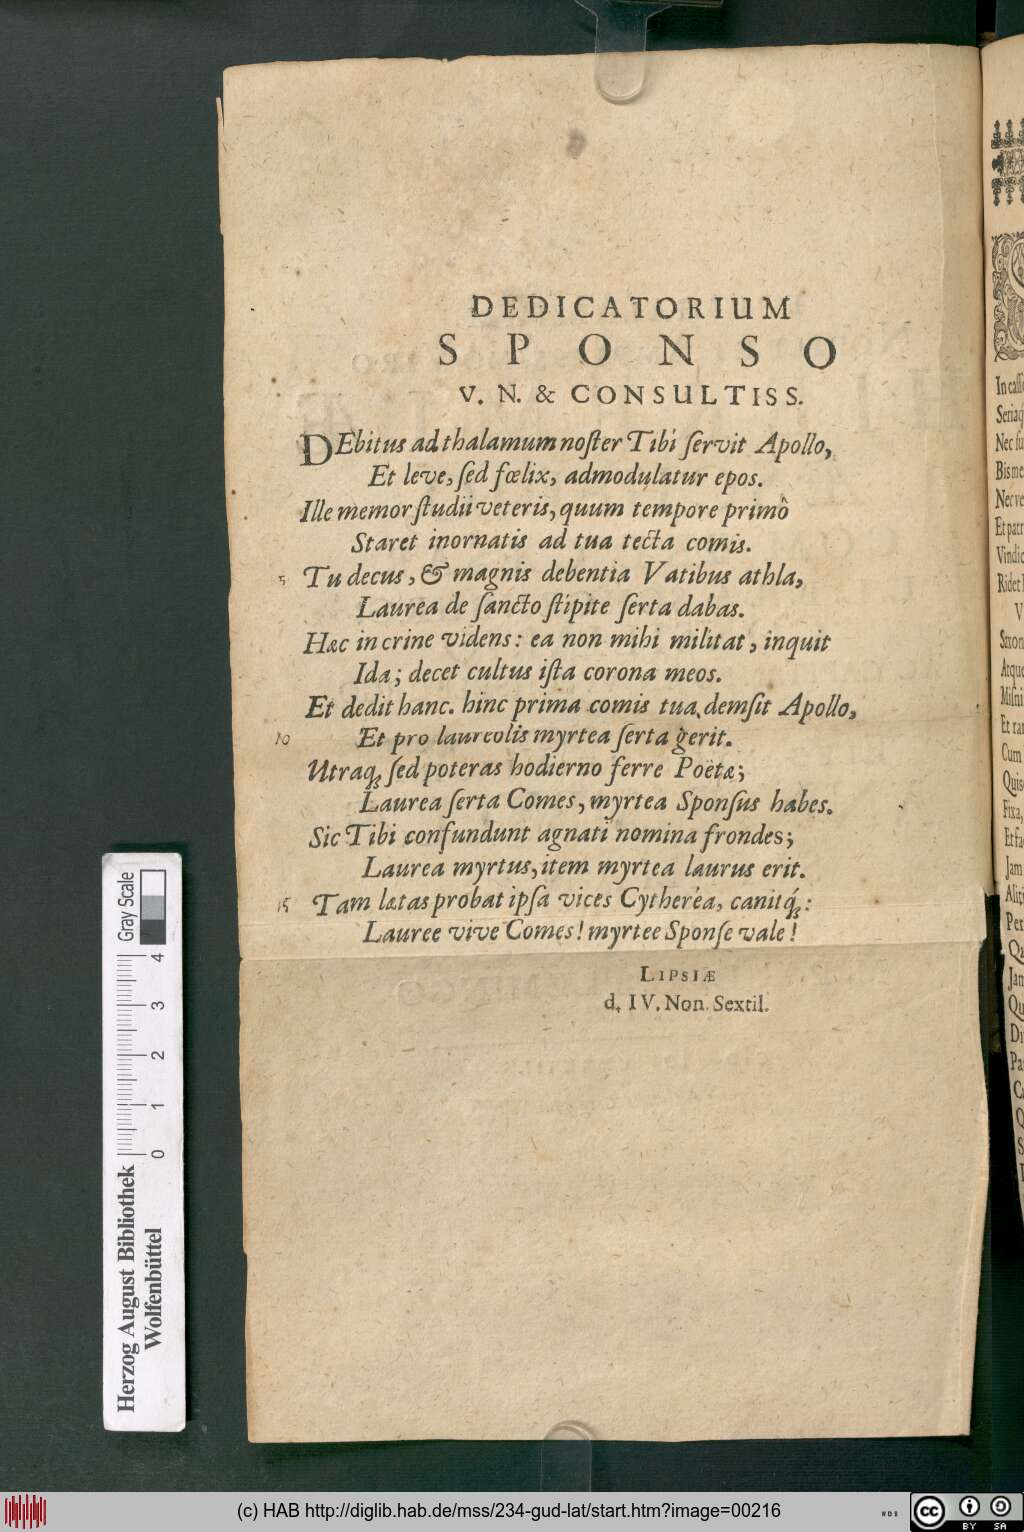 DEDICATORIUM
SPONSO
V. N. & CONSULTISS.
DEbitus ad thalamum noſter Tibi ſervit Apollo,
Et leve, ſed fœlix, admodulatur epos.
Ille memor ſtudii veteris, quum tempore primô
Staret inornatis ad tua tecta comis.
5 Tu decus, & magnis debentia Vatibus athla,
Laurea de ſancto ſtipite ſerta dabas.
Hæc in crine videns: ea non mihi militat, inquit
Ida; decet cultus iſta corona meos.
Et dedit hanc. hinc prima comis tua demſit Apollo,
10 Et pro laureolis myrtea ſerta gerit.
Utraq; ſed poteras hodierno ferre Poëtæ;
Laurea ſerta Comes, myrtea Sponſus habes.
Sic Tibi confundunt agnati nomina frondes;
Laurea myrtus, item myrtea laurus erit.
15 Tam lætas probat ipſa vices Cytheréa, canitq́;:
Lauree vive Comes! myrtee Sponſe vale!
LIPSIÆ
d. IV. Non. Sextil.
In
Seriaq
Nec ſu
Bis me
Nec ve
Et patr
Vindic
Ridet
V
Saxon
Atque
Miſni
Et ra
Cum
Quis
Fixa,
Et fa
Jam
Aliti
Per
Qu
Jan
Qu
Di
Pa
Gray Scale
4 3 2 1 0
Herzog August Bibliothek
Wolfenbüttel
(c) HAB http://diglib.hab.de/mss/234-gud-lat/start.htm?image=00216
cc BY SA